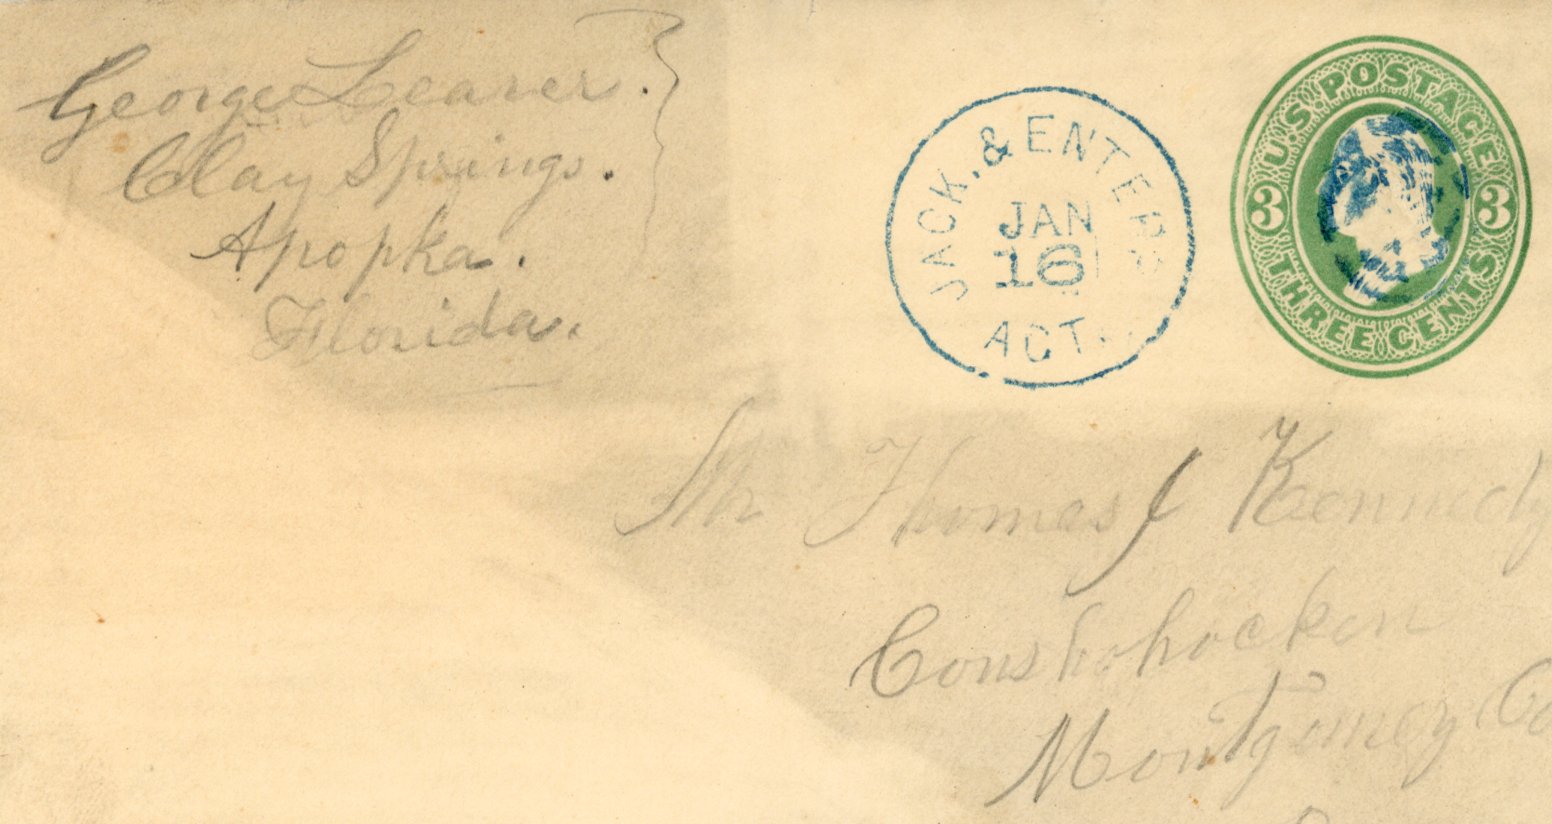 George Learer.
Clay Springs.
Apopka.
Florida.
JACK. & ENTERP
JAN
16
ACT.
U.S. POSTAGE
3 3
THREE CENTS
Mr Thomas J Kennedy
Conshohocken
Montgomery Co